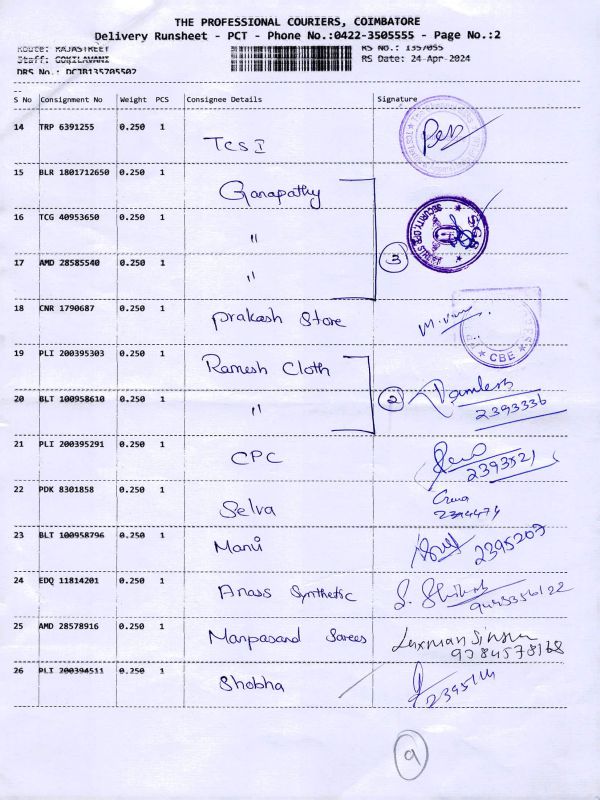 THE PROFESSIONAL COURIERS, COIMBATORE
Delivery Runsheet - PCT - Phone No.:0422-3505555 - Page No.:2
Route: RAJASTREET RS No.: 1357055
Staff: GOKILAVANI RS Date: 24-Apr-2024
DRS No.: DCJB135705502
S No Consignment No Weight PCS Consignee Details Signature
14 TRP 6391255 0.250 1 TCS I
15 BLR 1801712650 0.250 1 Ganapathy
16 TCG 40953650 0.250 1 "
S.G.S
SECURITY.OFF
3
17 AMD 28585540 0.250 1 "
18 CNR 1790687 0.250 1 Prakash Store
CBE
19 PLI 200395303 0.250 1 Ramesh Cloth
20 BLT 100958610 0.250 1 " 2
2393336
21 PLI 200395291 0.250 1 CPC
2393521
22 PDK 8301858 0.250 1 Selva
2394474
23 BLT 100958796 0.250 1 Manü 2395207
24 EDQ 11814201 0.250 1 Anass Synthetic
25 AMD 28578916 0.250 1 Manpasand Sarees Laxman
9384578168
26 PLI 200394511 0.250 1 Shobha
9